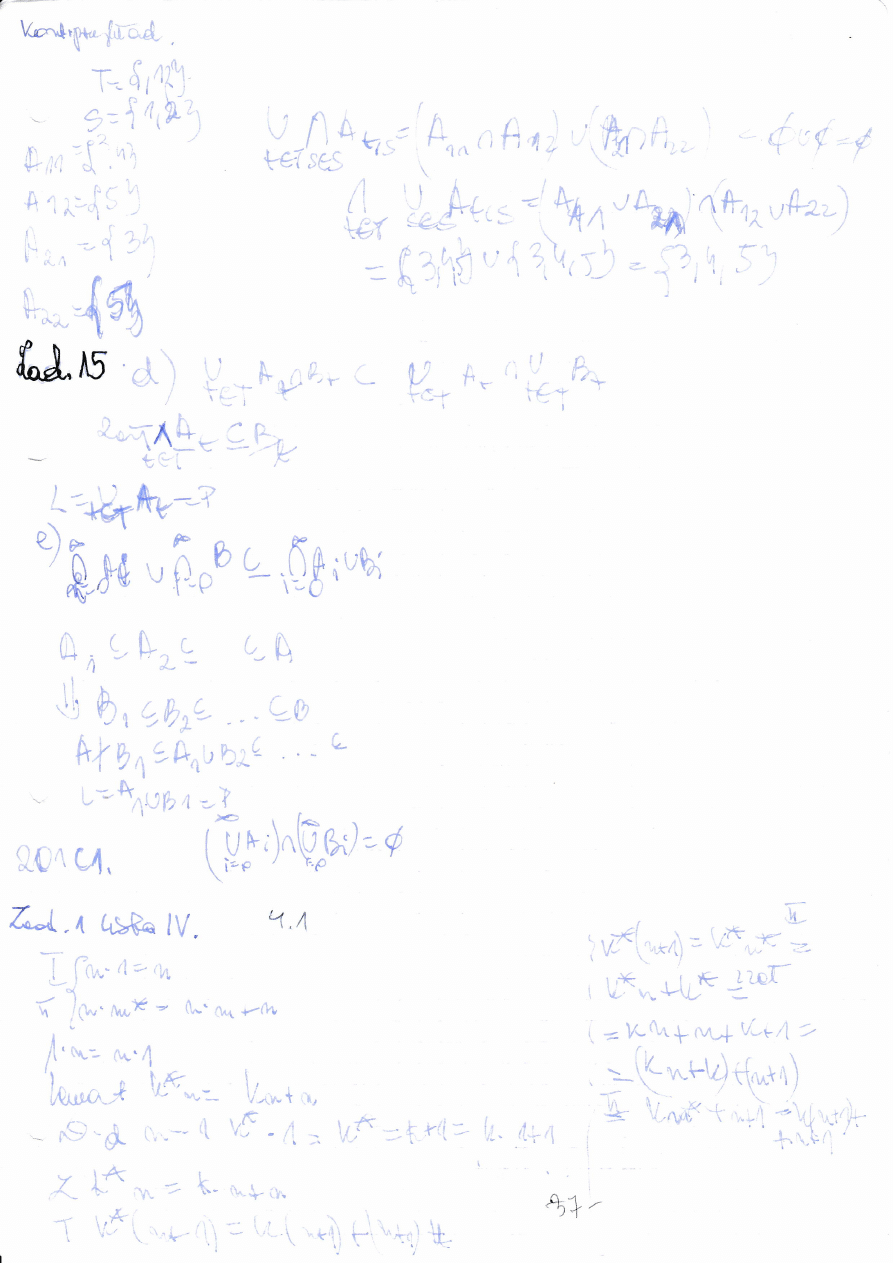 Kontrprzykład.
T={1,2}
S={1,2}
A11={4}
A12={5}
A21={3}
A22={5}
⋃t∈T ⋂s∈S At,s=(A11∩A12)∪(A21∩A22) = ∅∪∅=∅
⋂t∈T ⋃s∈S At,s=(A11∪A21)∩(A12∪A22)
={3,4,5}∪{3,4,5}={3,4,5}
Zad.15 d) ⋃t∈T At∩Bt ⊂ ⋃t∈T At ∩ ⋃t∈T Bt
zał ⋀t∈T At⊆Bt
L=⋃t∈T At=P
e)
∪ B ⊆ ⋂i=0∞ Ai∪Bi
A1⊆A2⊆ ⊆A
⇓ B1⊆B2⊆ ... ⊆B
⊆A1∪B2⊆ ... ⊆
L=A1∪B1=P
(⋃i=0∞ Ai)∩(⋃i=0∞ Bi)=∅
Zad.1 Lista IV. 4.1
I {n·1=n
II {n·m*=n·m+n
1·n=n·1
Lemat k*n=kn+n
D-d n=1 k*·1=k*=k+1=k·1+1
Z k*n=k·n+n
T k*(n+1)=k(n+1)+(n+1)
k*(n+1)=k*n* II=
k*n+k* =zał
=kn+n+k+1=
=(kn+k)+(n+1)
II= kn*+n+1=k(n+1)+
+n+1
37-